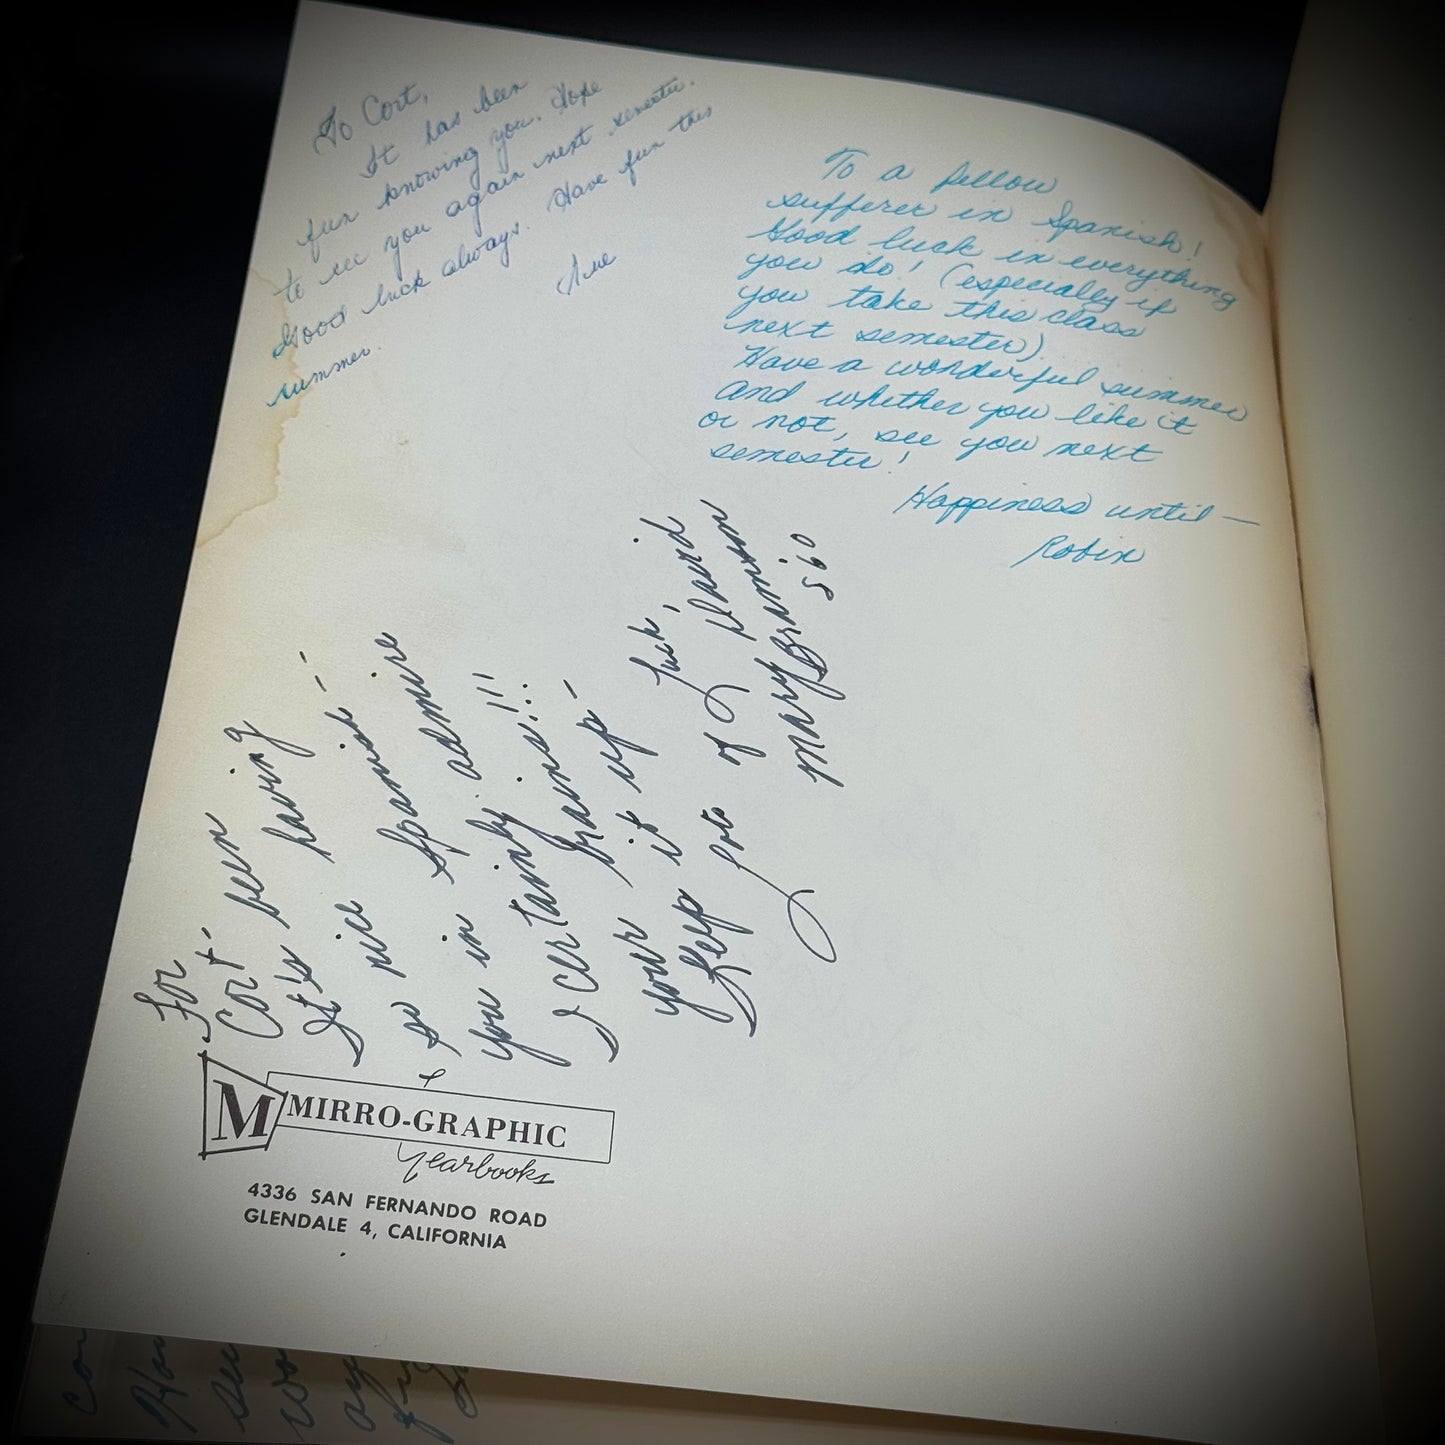 To Cort,
It has been
fun knowing you. Hope
to see you again next semester.
Good luck always. Have fun this
summer.
Sue
To a fellow
sufferer in Spanish!
Good luck in everything
you do! (especially if
you take this class
next semester)
Have a wonderful summer
and whether you like it
or not, see you next
semester!
Happiness until —
Robin
For
Cort-
It's been
so nice having
you in Spanish --
I certainly admire
your brains!!!
Keep it up -
Lots of luck,
Mary
S'60
M MIRRO-GRAPHIC
Yearbooks
4336 SAN FERNANDO ROAD
GLENDALE 4, CALIFORNIA